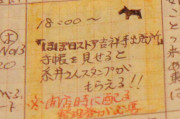 18:00〜
『ほぼ日ストア吉祥寺出張所』
手帳を見せると
糸井さんスタンプが
もらえる!!
※開店時に配る